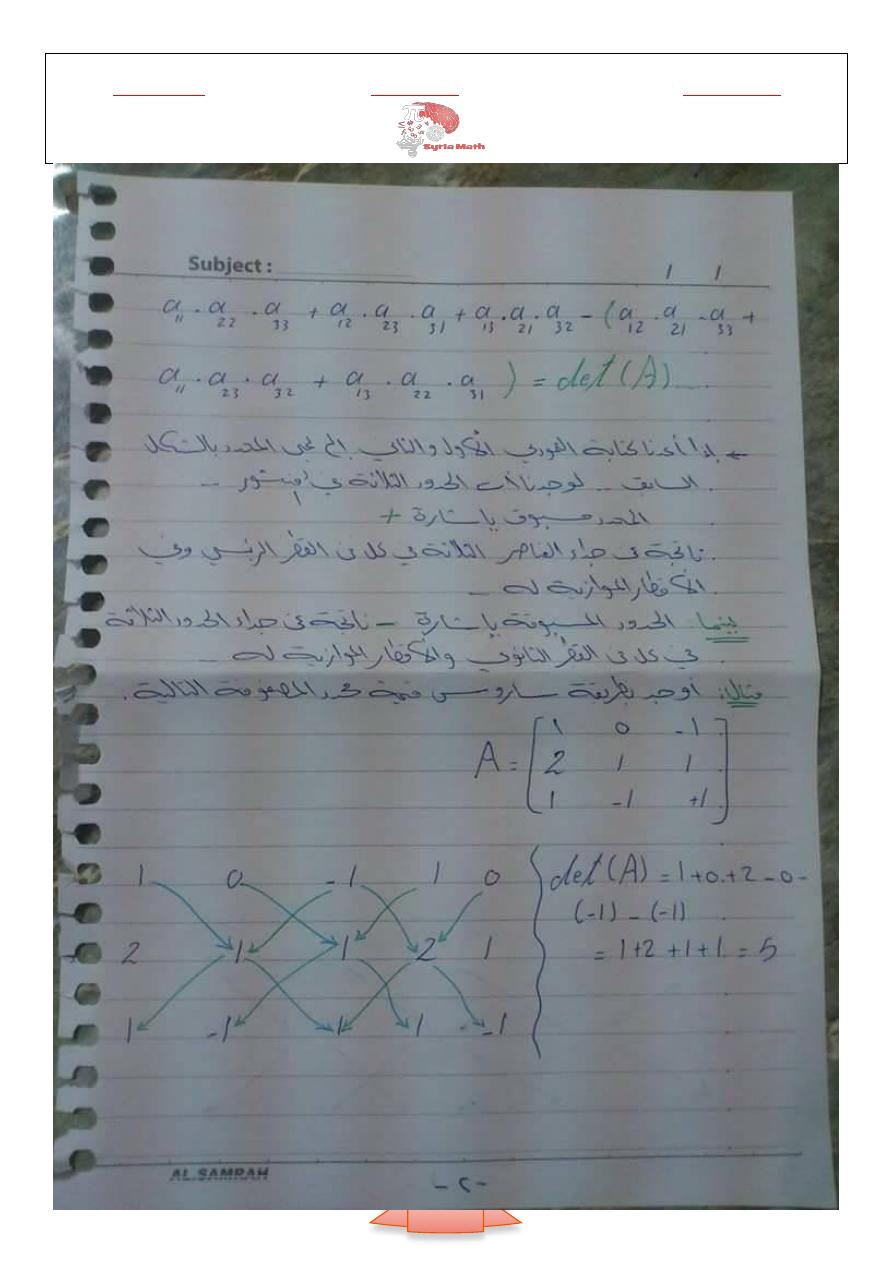 Syria Math
Subject :
/ /
a11 . a22 . a33 + a12 . a23 . a31 + a13 . a21 . a32 - ( a12 . a21 . a33 +
a11 . a23 . a32 + a13 . a22 . a31 ) = det(A)
← إذا أعدنا كتابة العمودين الأول والثاني إلى يمين المحدد بالشكل
السابق .. لوجدنا أن الحدود الثلاثة في منشور ..
المحدد مسبوق بإشارة +
ناتجة من جداء العناصر الثلاثة في كل من القطر الرئيسي وفي
الأقطار الموازية له ..
بينما: الحدود المسبوقة بإشارة - ناتجة من جداء الحدود الثلاثة
في كل من القطر الثانوي والأقطار الموازية له ..
مثال: أوجد بطريقة ساروس قيمة محدد المصفوفة التالية .
1 0 -1
A = 2 1 1
1 -1 +1
1 0 -1 1 0 det(A) = 1+0+2-0-
(-1) - (-1)
2 1 1 2 1 = 1+2+1+1 = 5
1 -1 1 1 -1
AL.SAMRAH
-٢-